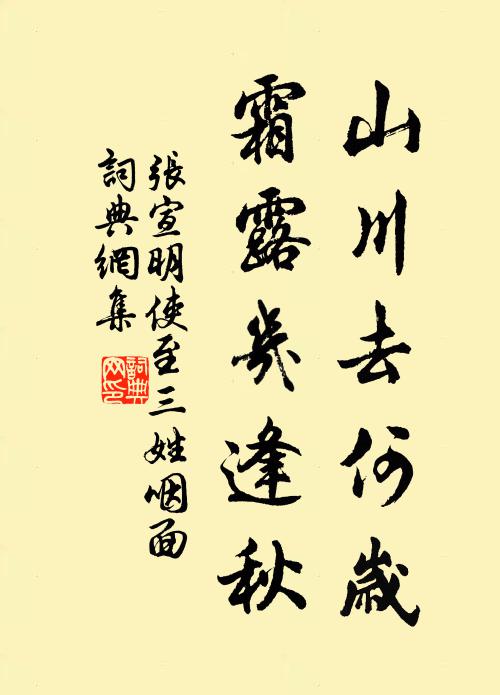 山川去何歲
霜露幾逢秋
張宣明使至三姓咽面
詞典網集
詞典
网印